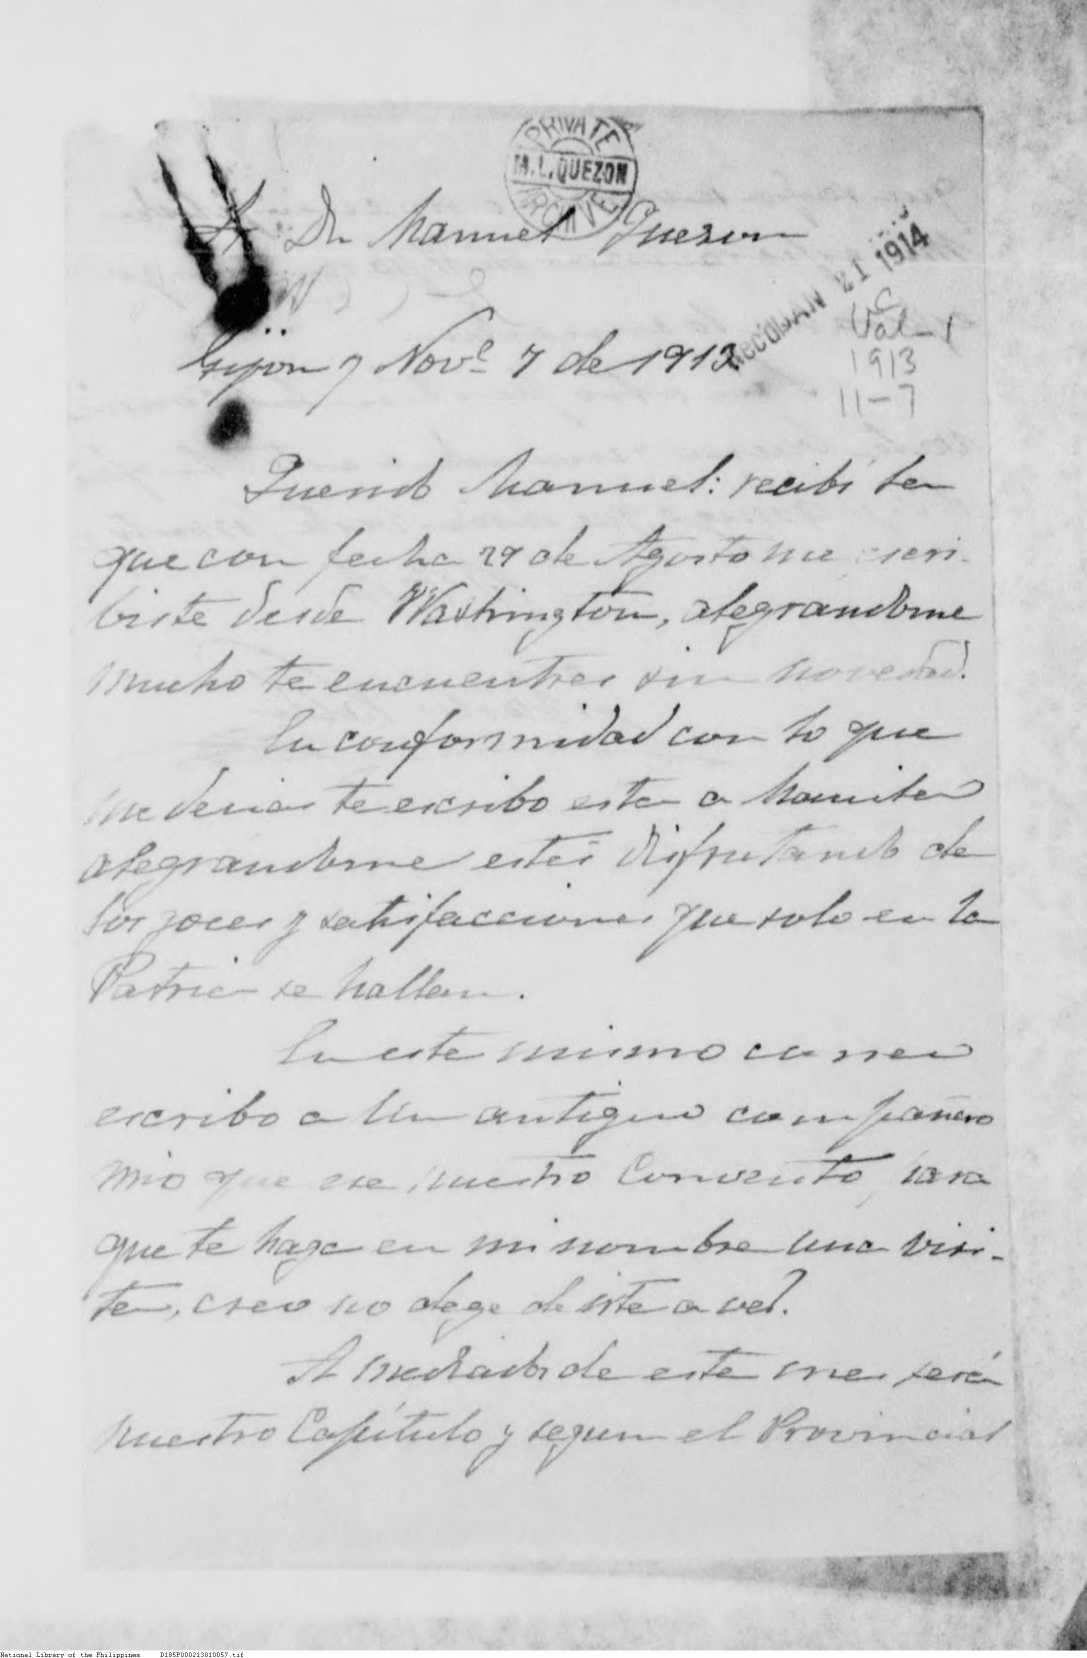 PRIVATE
M. L. QUEZON
ARCHIVE
Sr Dn Manuel Quezon
RecdJAN 21 1914
C
Val-1
1913
11-7
Gijon y Nove 7 de 1913
Querido Manuel: recibi la
que con fecha 29 de Agosto me escri-
biste desde Washington, alegrandome
mucho te encuentres sin novedad.
En conformidad con lo que
me decias te escribo esta a Manila
alegrandome estés disfrutando de
los goces y satisfacciones que solo en la
Patria se hallan.
En este mismo correo
escribo a un antiguo compañero
mio que ese nuestro Convento, para
que te haga en mi nombre una visi-
ta, creo no dege de irte a ver.
A mediados de este mes será
nuestro Capítulo y segun el Provincial
National Library of the Philippines D185P000213810057.tif